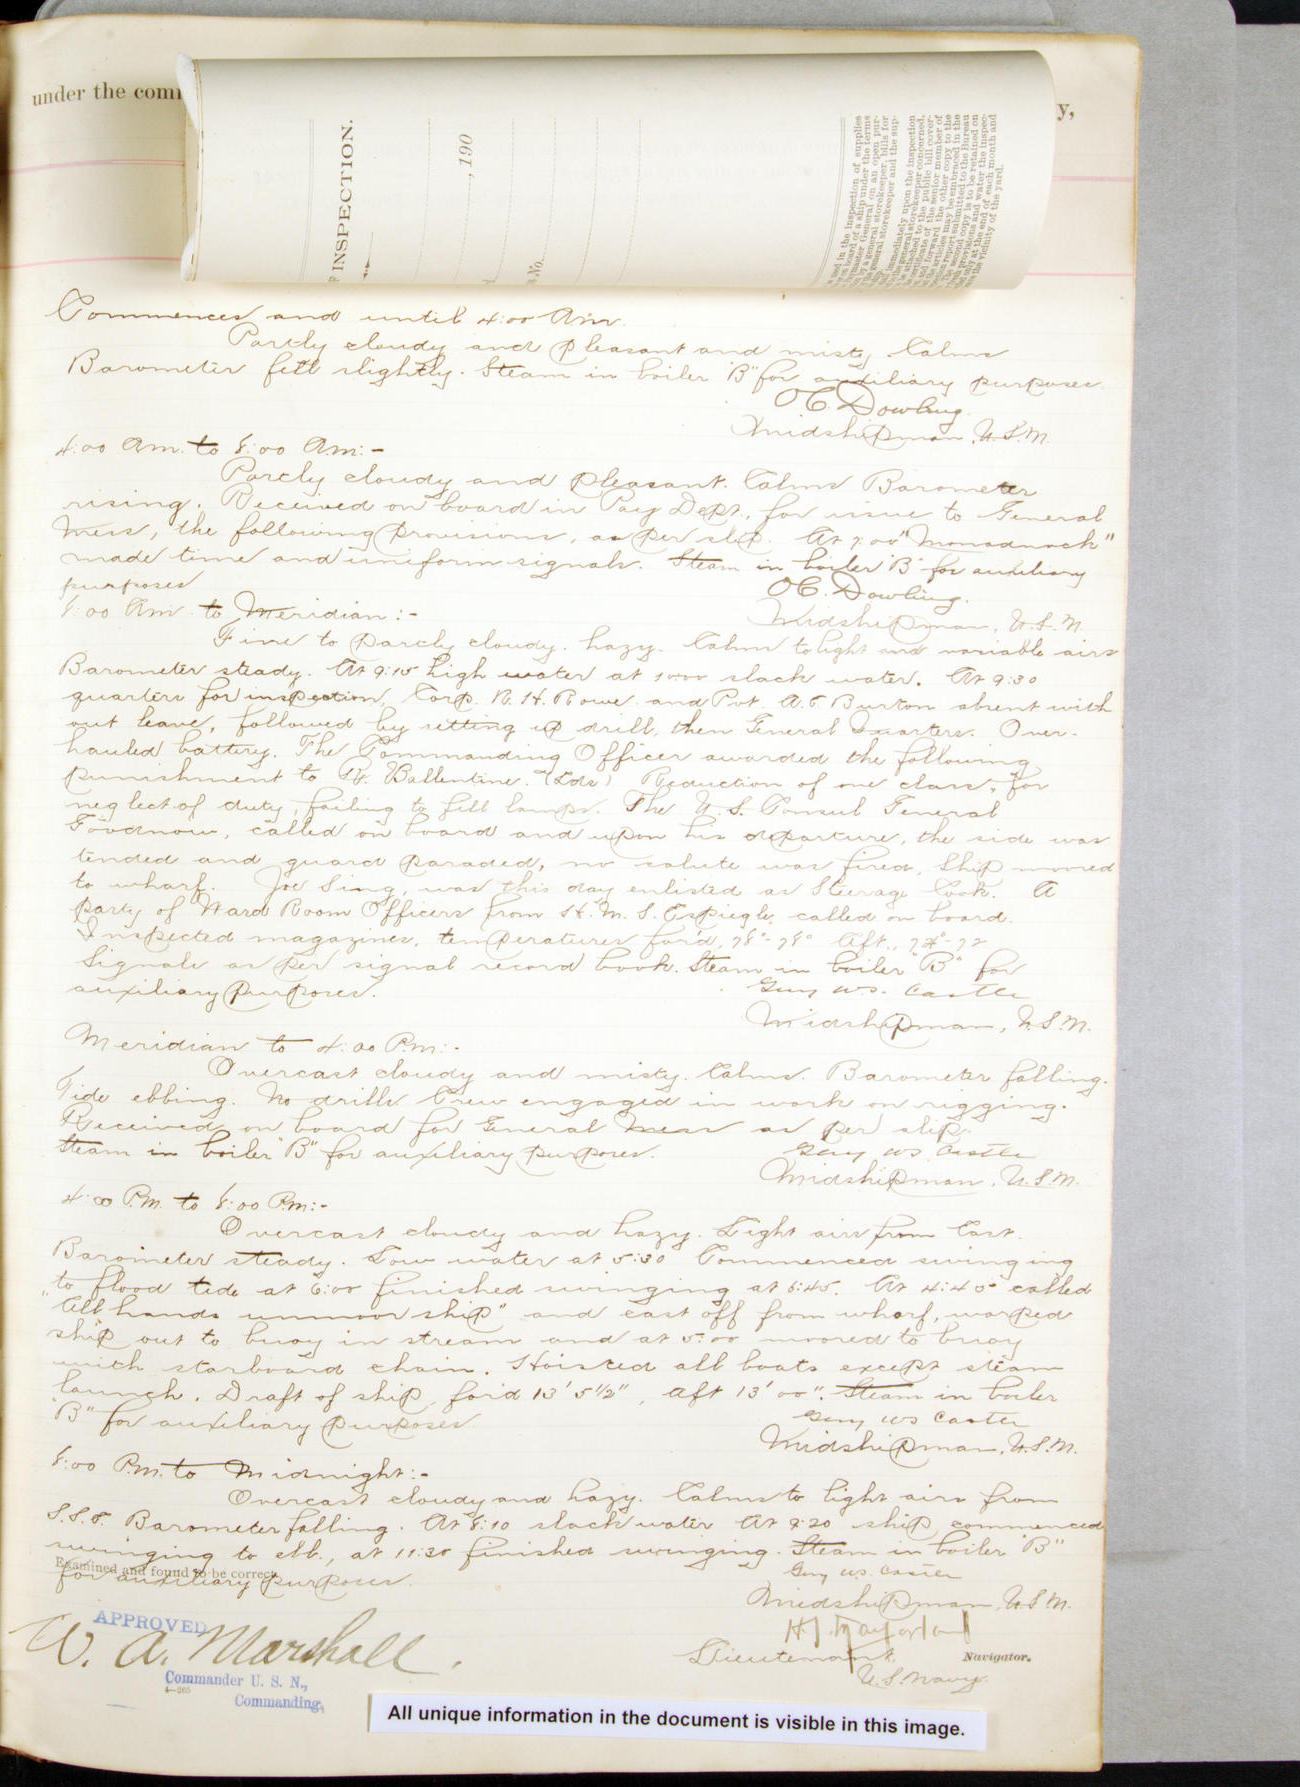 under the com
y,
INSPECTION.
, 190
No.
Commences and until 4:00 Am.
Partly cloudy and pleasant and misty Calms
Barometer fell slightly. Steam in boiler "B" for auxiliary purposes.
O C. Dowling
Midshipman, U.S.N.
4:00 Am. to 8:00 Am:-
Partly cloudy and pleasant. Calms Barometer
rising. Received on board in Pay Dept. for issue to General
Mess, the following provisions, as per slip. At 7:00 "Monadnock"
made time and uniform signals. Steam in boiler "B" for auxiliary
purposes
O C. Dowling.
Midshipman, U.S.N.
8:00 Am. to Meridian:-
Fine to partly cloudy. hazy. Calms to light and variable airs
Barometer steady. At 9:15 high water at 10:00 slack water. At 9:30
quarters for inspection, Corp. R. H. Rowe and Pvt. A. E. Burton absent with
out leave, followed by setting up drill, then General Quarters. Over-
hauled battery. The Commanding Officer awarded the following
punishment to Ballentine. (Lds) Reduction of one class, for
neglect of duty, failing to fill lamps. The U. S. Consul General
Goodnow, called on board and upon his departure, the side was
tended and guard paraded, no salute was fired, Ship moved
to wharf. Joe Sing, was this day enlisted as Steerage Cook. A
party of Ward Room Officers from H. M. S. Espiegle, called on board.
Inspected magazines, temperatures for'd, 78°-78° Aft., 72°-72
Signals as per signal record book. Steam in boiler "B" for
auxiliary purposes.
Guy W.S. Castle
Midshipman, U.S.N.
Meridian to 4:00 P.m:-
Overcast cloudy and misty. Calms. Barometer falling.
Tide ebbing. No drills Crew engaged in work on rigging.
Received on board for General Mess as per slip.
Steam in boiler "B" for auxiliary purposes.
Guy WS Castle
Midshipman, U.S.N.
4:00 P.M. to 8:00 P.m:-
Overcast cloudy and hazy. Light airs from East.
Barometer steady. Low water at 5:30 Commenced swinging
to flood tide at 6:00 finished swinging at 6:45. At 4:45 called
"All hands unmoor ship" and cast off from wharf, warped
ship out to buoy in stream and at 5:00 moored to buoy
with starboard chain. Hoisted all boats except steam
launch. Draft of ship for'd 13' 5½", aft 13' 00". Steam in boiler
"B" for auxiliary purposes
Guy WS Castle
Midshipman, U.S.N.
8:00 P.m. to Midnight:-
Overcast cloudy and hazy. Calms to light airs from
S.S.E. Barometer falling. At 8:10 slack water At 9:20 ship commenced
swinging to ebb, at 11:30 finished swinging. Steam in boiler "B"
for auxiliary purposes.
Guy W.S. Castle
Midshipman, U.S.N.
Examined and found to be correct.
APPROVED
W. A. Marshall.
Commander U. S. N.,
Commanding.
4—265
Lieutenant,
Navigator.
U.S. Navy.
All unique information in the document is visible in this image.